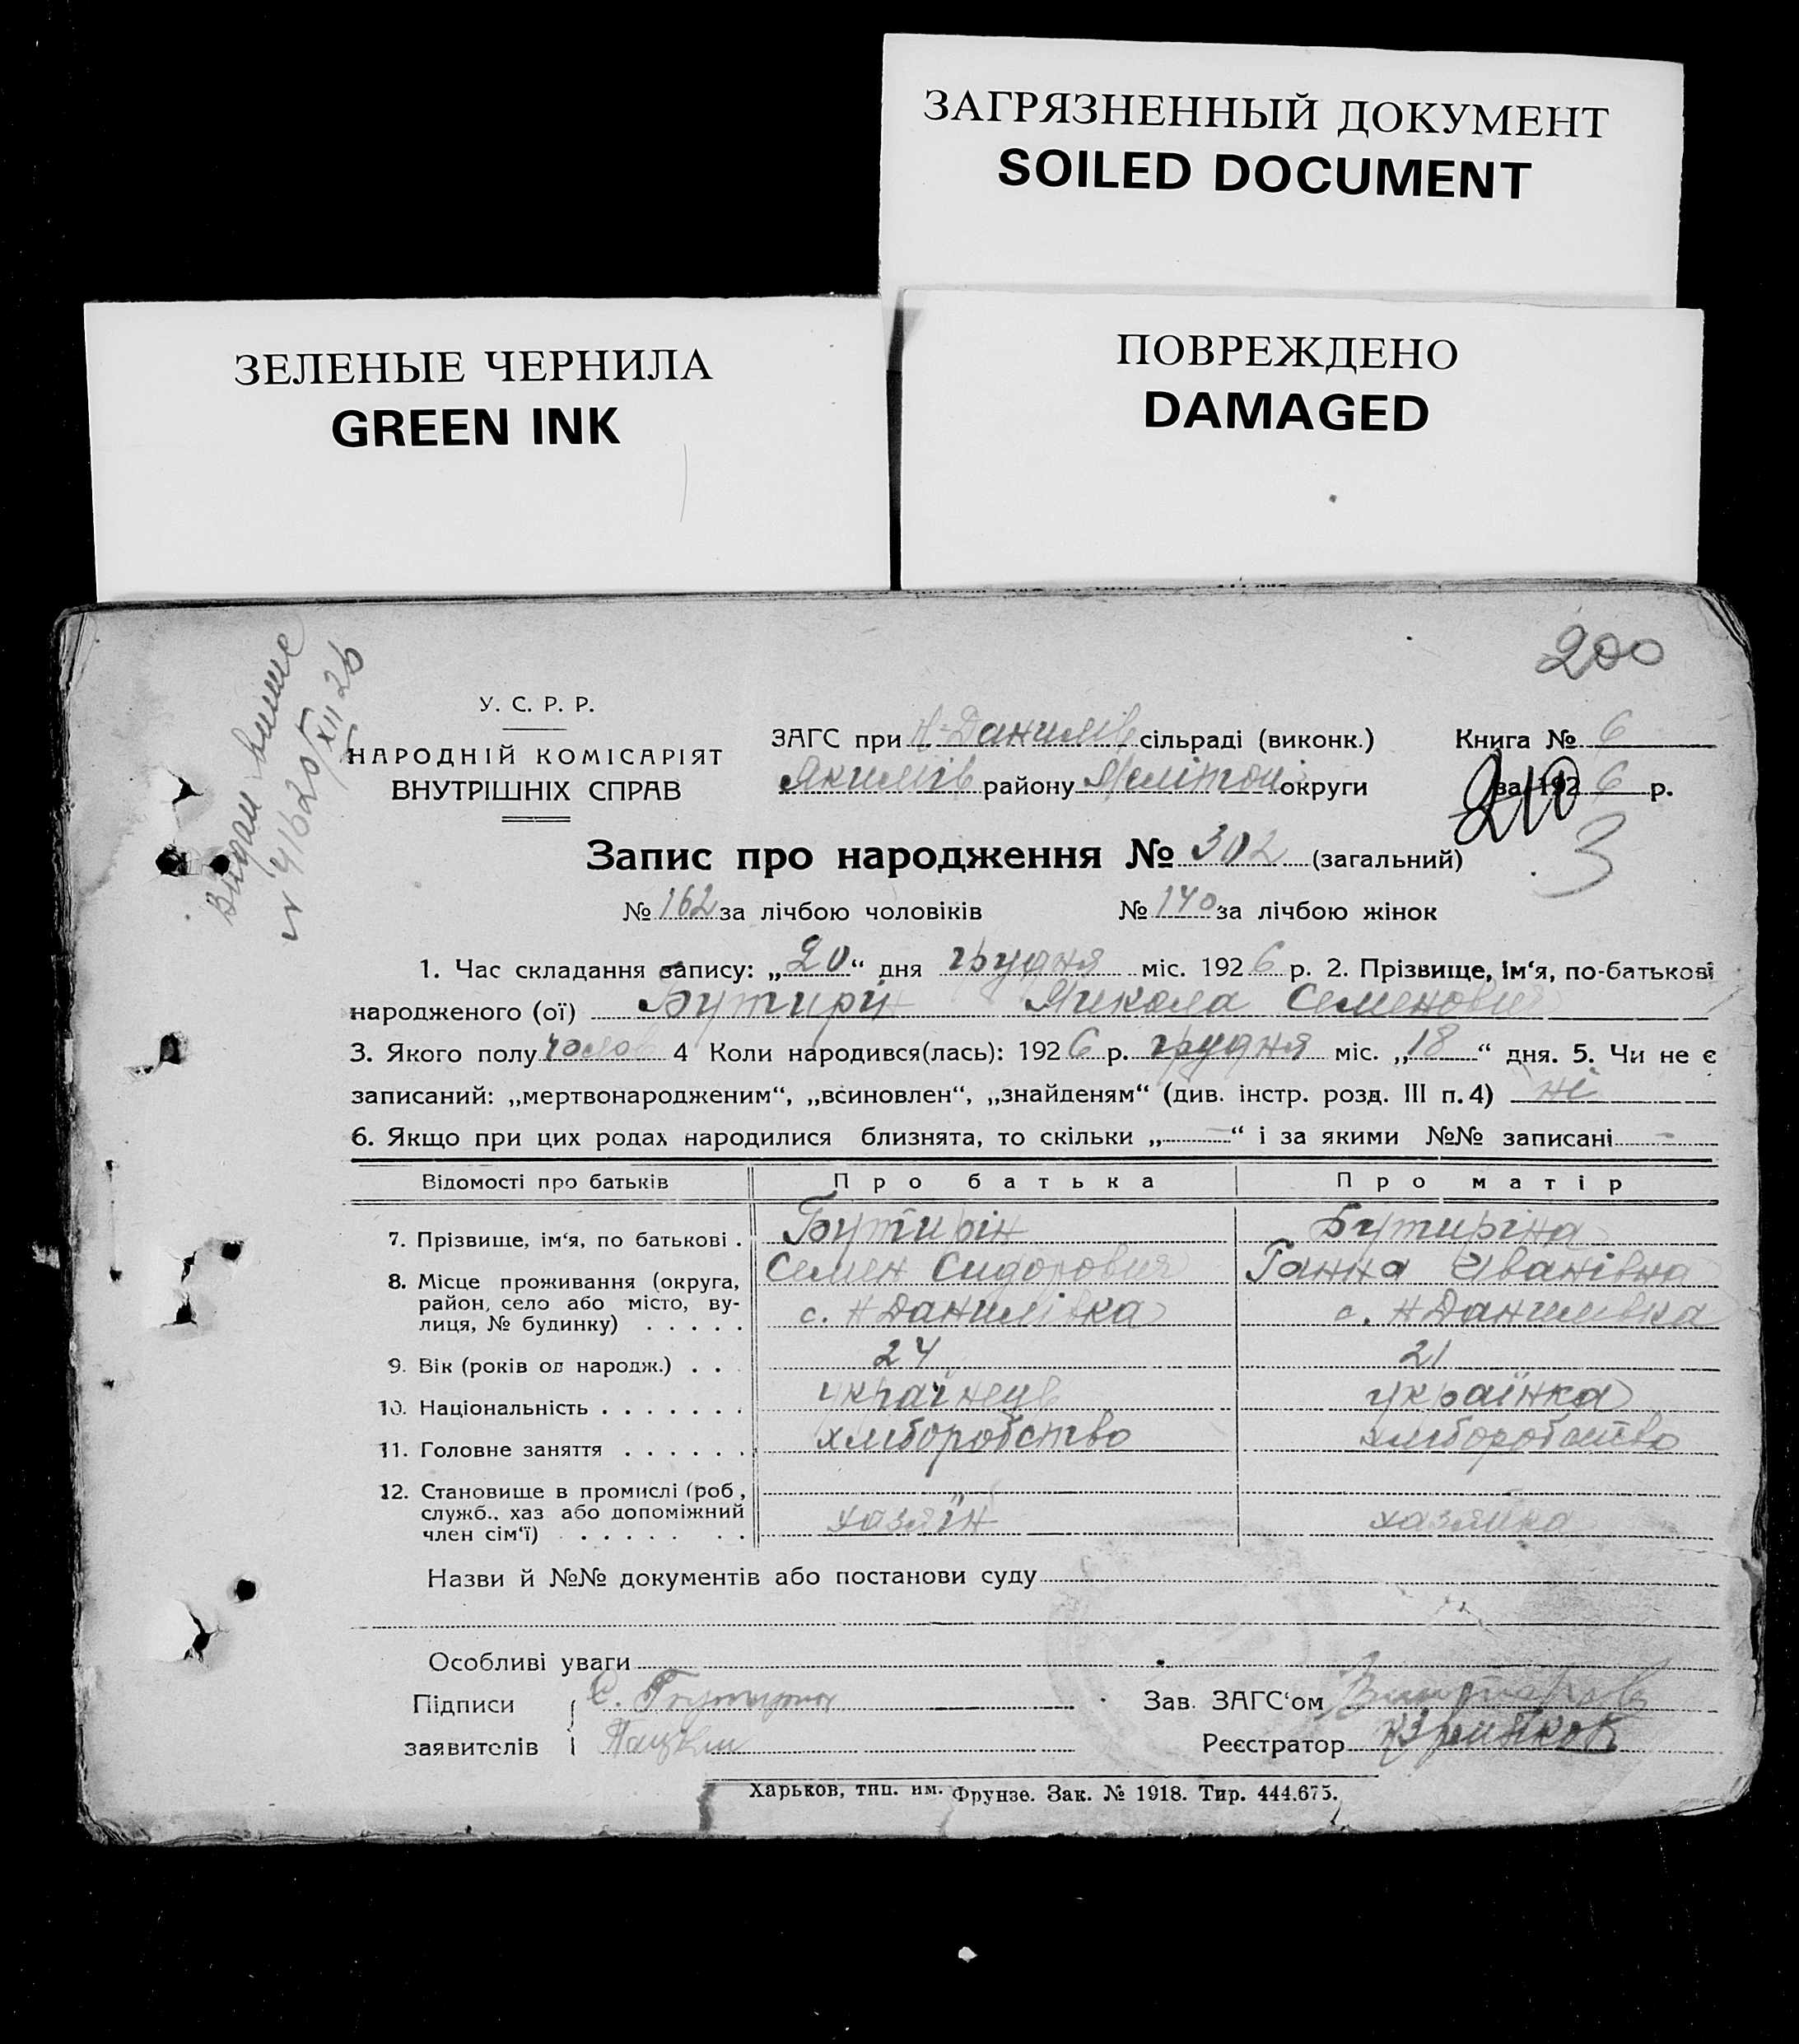 ЗАГРЯЗНЕННЫЙ ДОКУМЕНТ
SOILED DOCUMENT
ЗЕЛЕНЫЕ ЧЕРНИЛА
GREEN INK
ПОВРЕЖДЕНО
DAMAGED
200
У. С. Р. Р.
НАРОДНІЙ КОМІСАРІЯТ
ВНУТРІШНІХ СПРАВ
ЗАГС при Н-Данилів сільраді (виконк.)
Якимів району Мелітоп округи
Книга № 6
за 1926 р.
210
3
Запис про народження № 302 (загальний)
№ 162 за лічбою чоловіків № 140 за лічбою жінок
1. Час складання запису: „20“ дня грудня міс. 1926 р. 2. Прізвище, ім‘я, по-батькові
народженого (ої) Бутирін Микола Семенович
3. Якого полу чолов 4 Коли народився(лась): 1926 р. грудня міс. „18“ дня. 5. Чи не є
записаний: „мертвонародженим“, „всиновлен“, „знайденям“ (див. інстр. розд. III п. 4) ні
6. Якщо при цих родах народилися близнята, то скільки „—“ і за якими №№ записані -
Відомості про батьків Про батька Про матір
7. Прізвище, ім‘я, по батькові . Бутирін Бутиріна
Семен Сидорович Ганна Іванівна
8. Місце проживання (округа,
район, село або місто, ву-
лиця, № будинку) . . . . . с. Н Данилівка с. Н Данилівка
9. Вік (років од народж.) . . 24 21
10. Національність . . . . . . . українець українка
11. Головне заняття . . . . . . хліборобство хліборобство
12. Становище в промислі (роб,
служб., хаз або допоміжний
член сім‘ї) . . . . . . . хазяїн хазяйка
Назви й №№ документів або постанови суду
Особливі уваги
Підписи С. Бутирин Зав. ЗАГС‘ом
заявителів Реєстратор
Харьков, тип. им. Фрунзе. Зак. № 1918. Тир. 444.675.